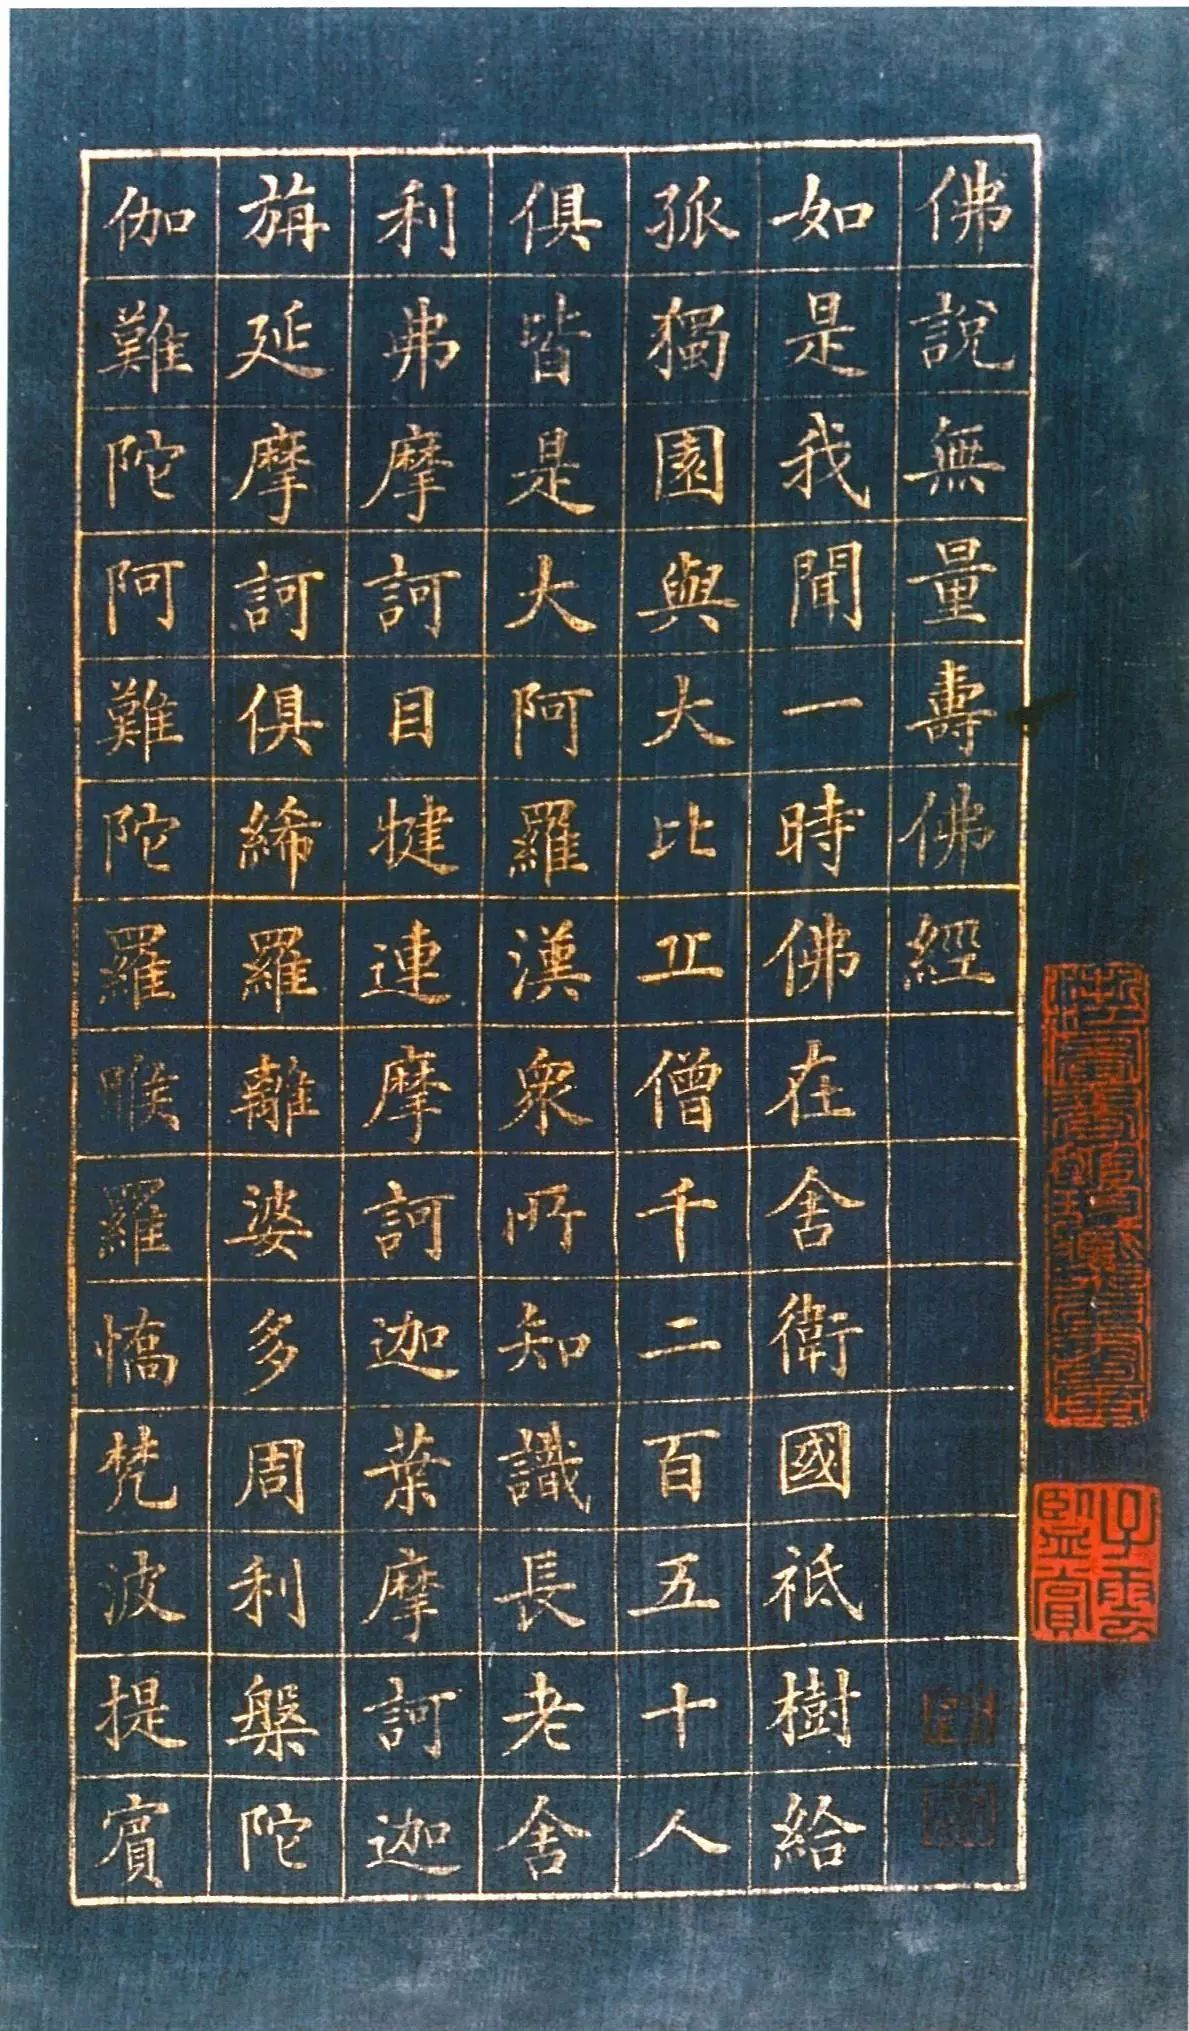 佛說無量壽佛經
如是我聞一時佛在舍衛國祇樹給
孤獨園與大比丘僧千二百五十人
俱皆是大阿羅漢眾所知識長老舍
利弗摩訶目揵連摩訶迦葉摩訶迦
旃延摩訶俱絺羅離婆多周利槃陀
伽難陀阿難陀羅睺羅憍梵波提賓
子雲